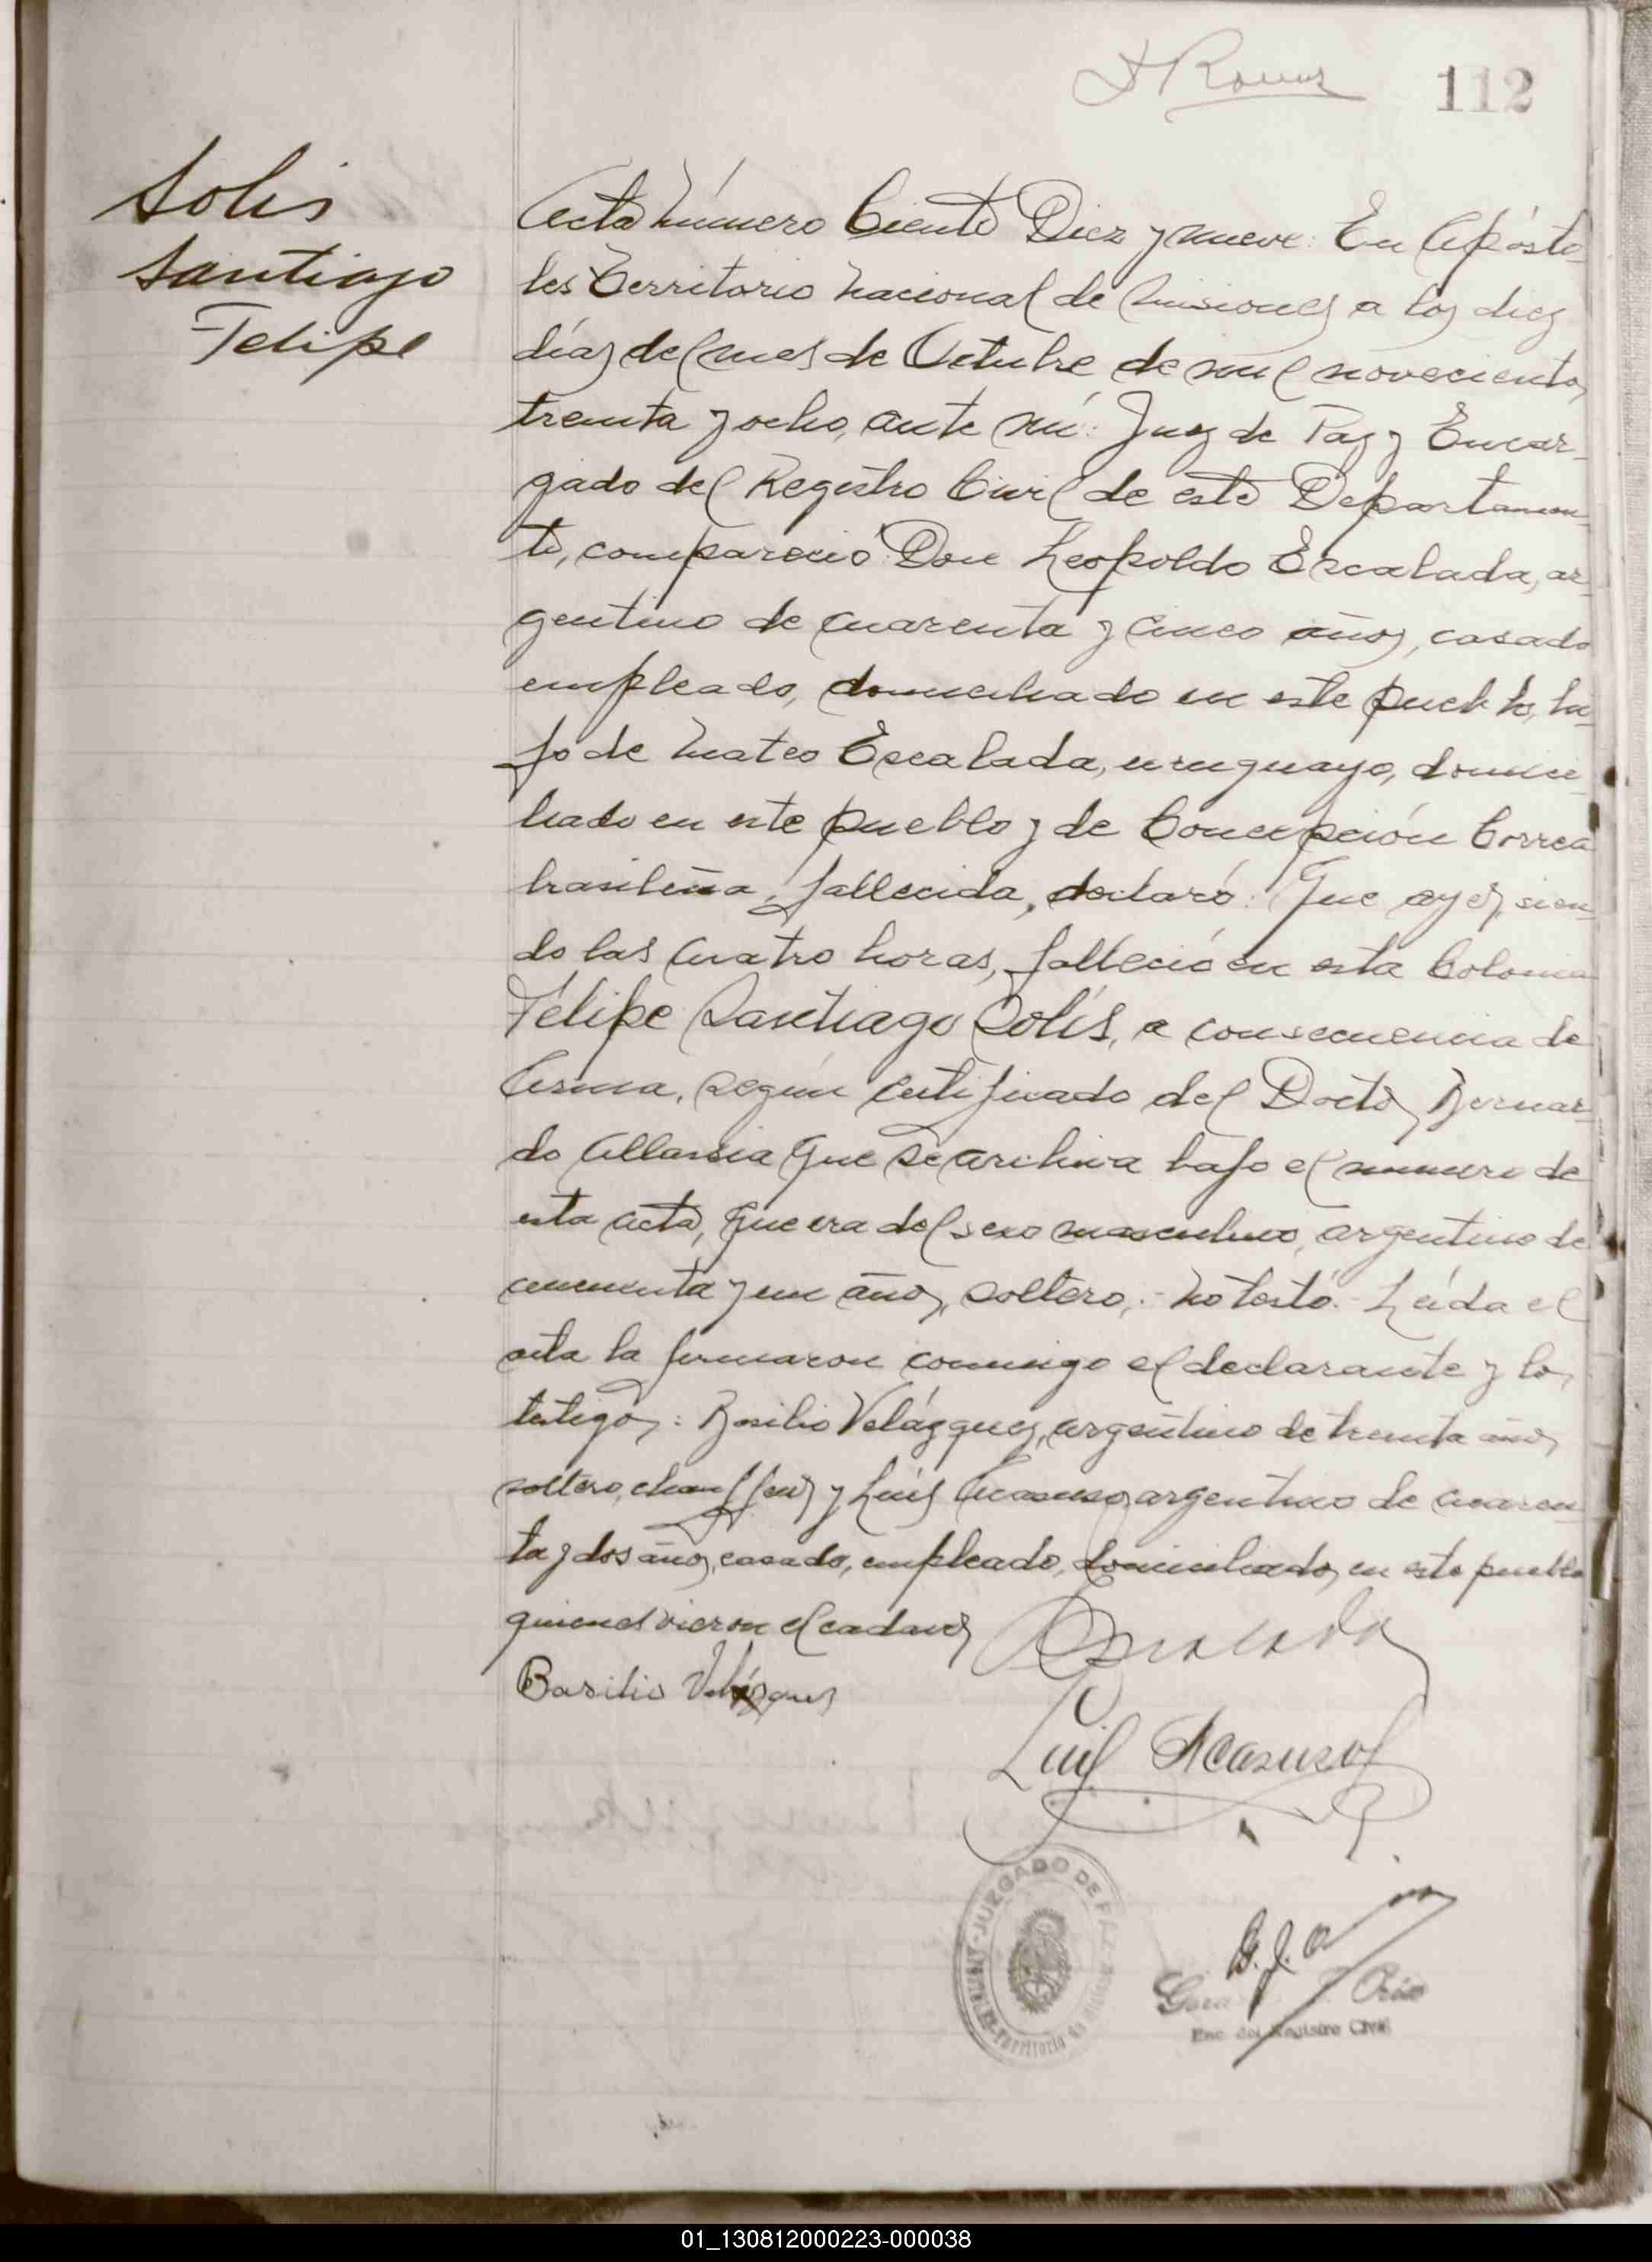 112
Solis
Santiago
Felipe
Acta Número Ciento Diez y nueve: En Apósto
les Territorio Nacional de Misiones a los diez
días del mes de Octubre de mil novecientos
treinta y ocho, ante mí: Juez de Paz y Encar-
gado del Registro Civil de este Departamen-
to, compareció: Don Leopoldo Escalada, ar-
gentino de cuarenta y cinco años, casado
empleado, domiciliado en este pueblo, hi-
jo de Mateo Escalada, uruguayo, domici-
liado en este pueblo y de Concepción Correa
brasileña, fallecida, declaró: Que ayer, sien-
do las cuatro horas, falleció en esta Colonia
Felipe Santiago Solís, a consecuencia de
Asma, según certificado del Doctor Bernar-
do que se archiva bajo el numero de
esta acta, que era del sexo masculino, argentino de
cincuenta y un años, soltero,.- No testó.- Leída el
acta la firmaron conmigo el declarante y los
testigos: Basilio Velázquez, argentino de treinta años
soltero, chauffeur y Luís Acasuso, argentino de cuaren-
ta y dos años, casado, empleado, domiciliados en este pueblo
quienes vieron el cadaver
Escalada
Basilio Velázquez
Luis Acasuso
JUZGADO DE PAZ
Territorio de Misiones
Enc. del Registro Civil
01_130812000223-000038